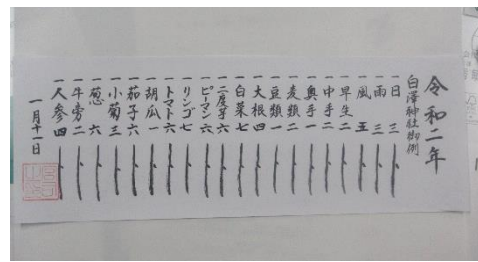 令和二年
白澤神社御例
一日 三
一雨 三
一風 五
一早生 二
一中手 二
一奥手 一
一麦類 二
一豆類 一
一大根 四
一白菜 七
一二度芋 六
一ピーマン 六
一リンゴ 七
一トマト 六
一胡瓜 一
一茄子 六
一小菊 三
一葱 六
一牛旁 二
一人参 四
一月十一日